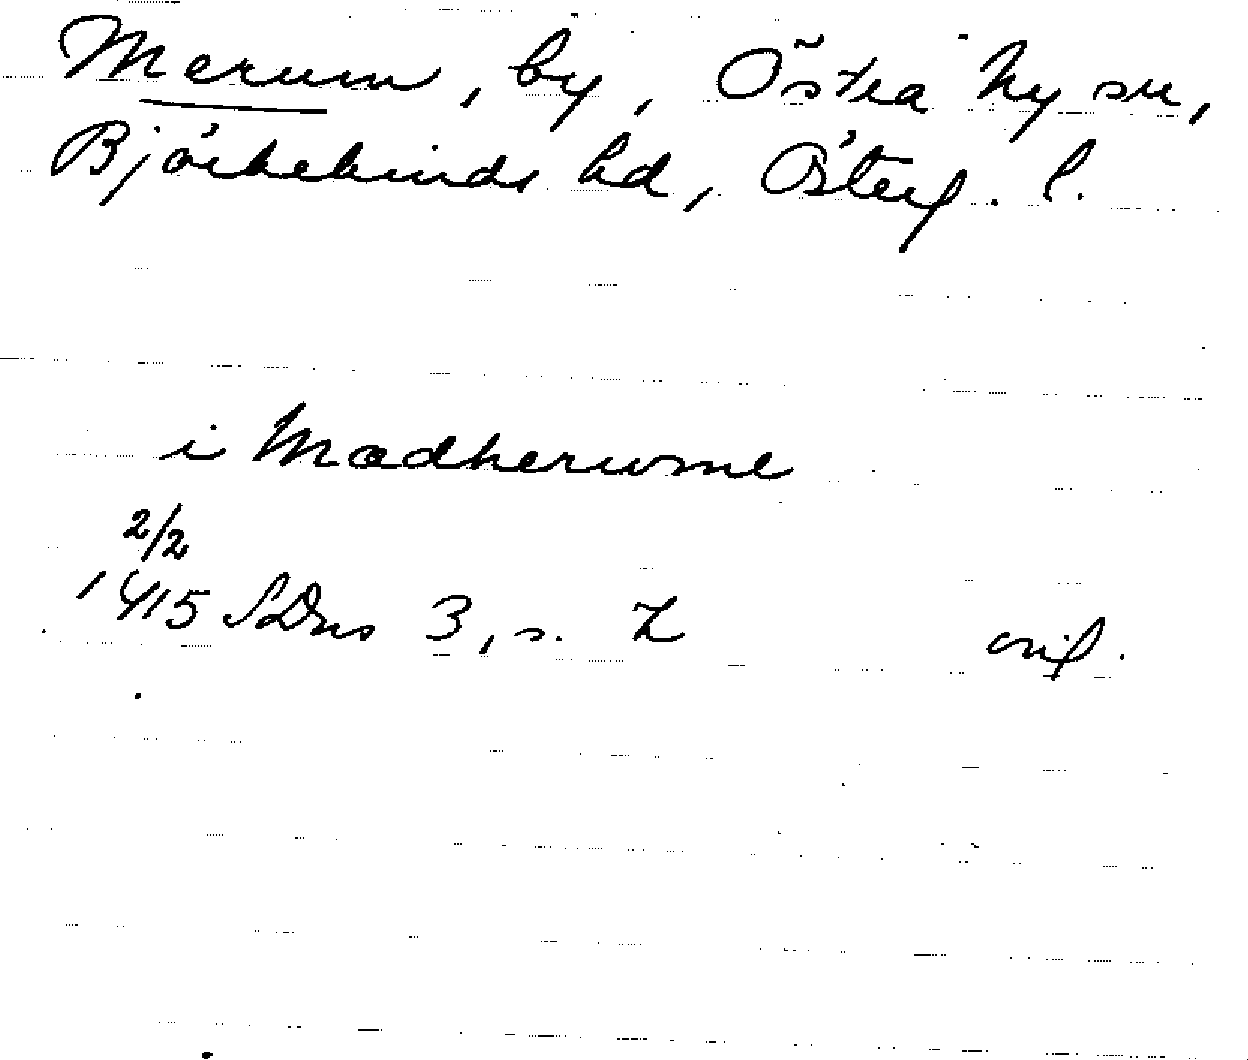 Merum, by, Östra Ny sn,
Björkekinds hd, Österg. l.
i Madherwme
2/2
1415 SDns 3, s. 2
orig.